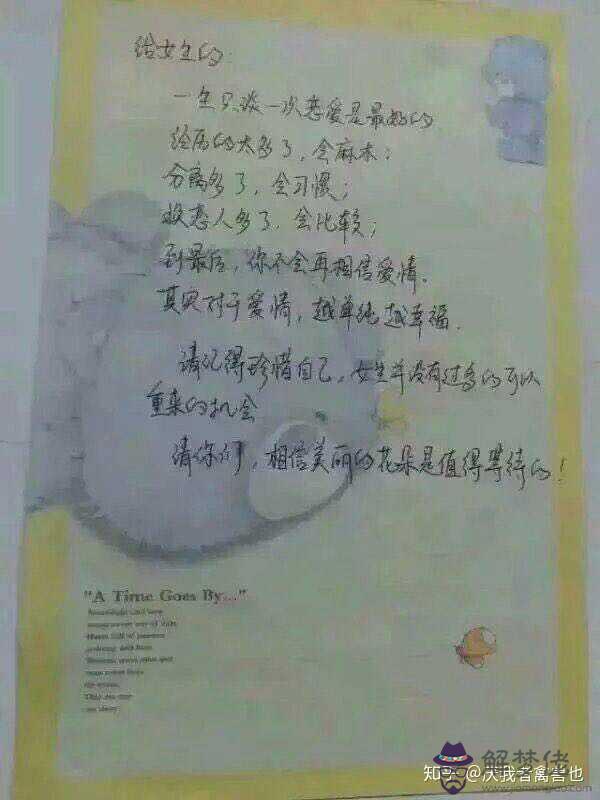 给女生的:
一生只谈一次恋爱是最好的
经历的太多了，会麻木;
分离多了，会习惯;
换恋人多了，会比较;
到最后，你不会再相信爱情.
其实对于爱情，越单纯越幸福.
请记得珍惜自己，女生并没有过多的可以
重来的机会
请你们，相信美丽的花朵是值得等待的!
"A Time Goes By..."
知乎
解梦佬
www.jiemenglao.com